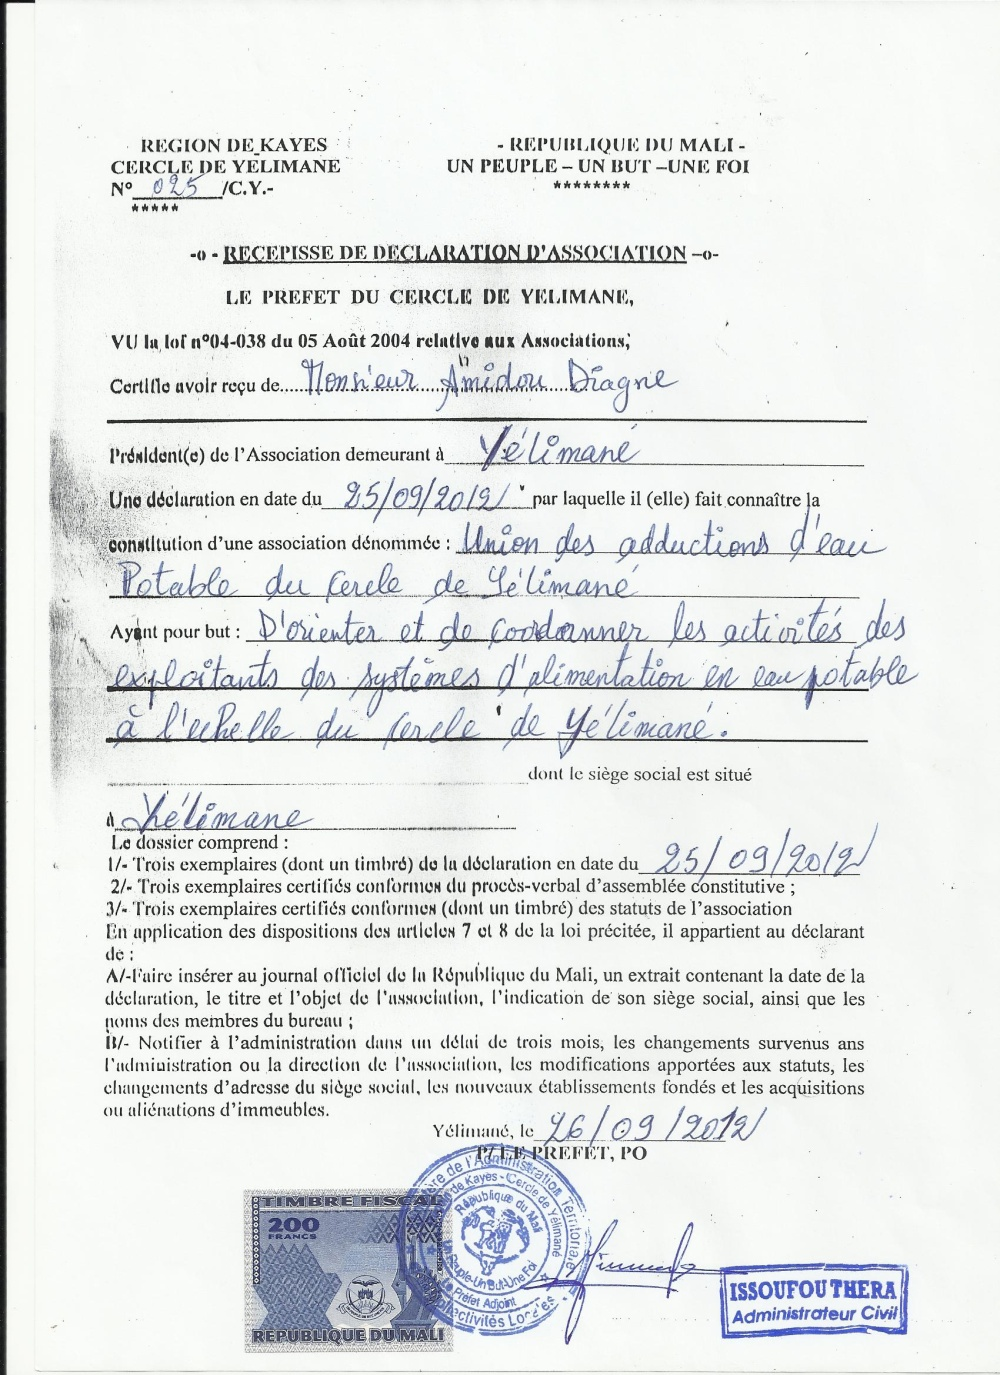 REGION DE KAYES
CERCLE DE YELIMANE
N° 025 /C.Y.-
*****
- REPUBLIQUE DU MALI -
UN PEUPLE – UN BUT –UNE FOI
********
-o - RECEPISSE DE DECLARATION D'ASSOCIATION –o-
LE PREFET DU CERCLE DE YELIMANE,
VU la loi n°04-038 du 05 Août 2004 relative aux Associations;
Certifie avoir reçu de Monsieur Amidou Diagne
Président(e) de l'Association demeurant à Yélimané
Une déclaration en date du 25/09/2012 par laquelle il (elle) fait connaître la
constitution d'une association dénommée : Union des adductions d'eau
Potable du cercle de Yélimané
Ayant pour but : D'orienter et de coordonner les activités des
exploitants des systèmes d'alimentation en eau potable
à l'echelle du cercle de Yélimané.
dont le siège social est situé
à Yélimane
Le dossier comprend :
1/- Trois exemplaires (dont un timbré) de la déclaration en date du 25/09/2012
2/- Trois exemplaires certifiés conformes du procès-verbal d'assemblée constitutive ;
3/- Trois exemplaires certifiés conformes (dont un timbré) des statuts de l'association
En application des dispositions des articles 7 et 8 de la loi précitée, il appartient au déclarant
de :
A/-Faire insérer au journal officiel de la République du Mali, un extrait contenant la date de la
déclaration, le titre et l'objet de l'association, l'indication de son siège social, ainsi que les
noms des membres du bureau ;
B/- Notifier à l'administration dans un délai de trois mois, les changements survenus ans
l'administration ou la direction de l'association, les modifications apportées aux statuts, les
changements d'adresse du siège social, les nouveaux établissements fondés et les acquisitions
ou aliénations d'immeubles.
Yélimané, le 26/09/2012
P/ LE PREFET, PO
TIMBRE FISCAL
200
FRANCS
REPUBLIQUE DU MALI
de l'Administration Territoriale
de Kayes - Cercle de Yélimané
République du Mali
Peuple-Un But-Une Foi
Préfet Adjoint
Collectivités Locales
ISSOUFOU THERA
Administrateur Civil